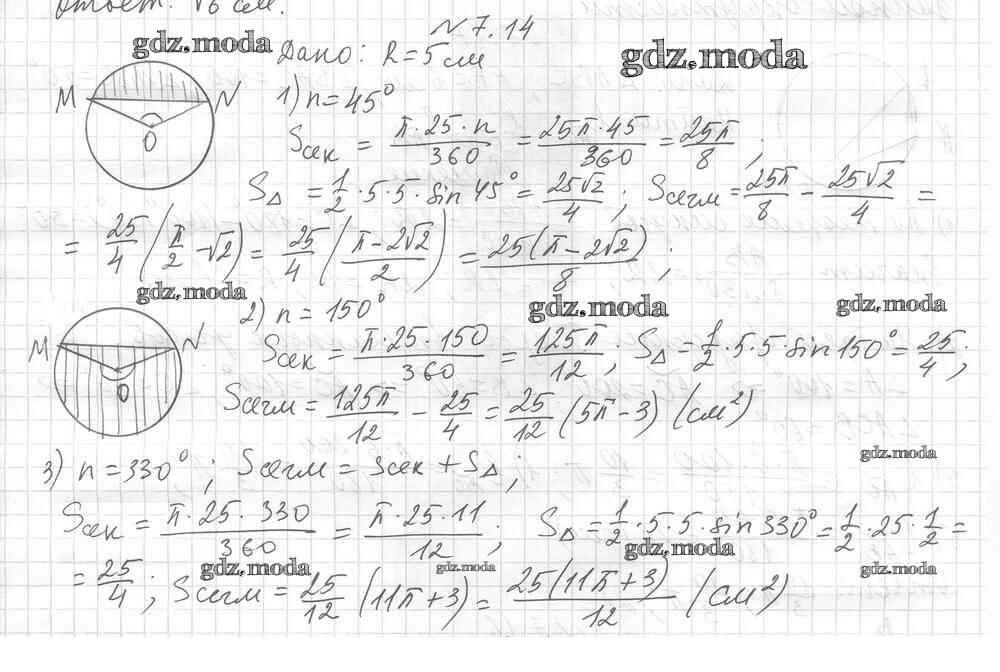 Ответ: √6 см.
N 7.14
gdz.moda
Дано: R = 5 см
gdz.moda
M N
O
1) n = 45°
Sсек = π·25·n/360 = 25π·45/360 = 25π/8 ;
S△ = 1/2 · 5·5· sin 45° = 25√2/4 ; Sсегм = 25π/8 − 25√2/4 =
= 25/4 (π/2 − √2) = 25/4 ((π − 2√2)/2) = 25(π − 2√2)/8 ;
gdz.moda
gdz.moda
gdz.moda
2) n = 150°
M N
O
Sсек = π·25·150/360 = 125π/12 ; S△ = 1/2 · 5·5· sin 150° = 25/4 ;
Sсегм = 125π/12 − 25/4 = 25/12 (5π − 3) (см²)
gdz.moda
3) n = 330° ; Sсегм = Sсек + S△ ;
Sсек = π·25·330/360 = π·25·11/12 ; S△ = 1/2 · 5·5· sin 330° = 1/2 · 25 · 1/2 =
gdz.moda
gdz.moda
gdz.moda
gdz.moda
= 25/4 ; Sсегм = 25/12 (11π + 3) = 25(11π + 3)/12 (см²)